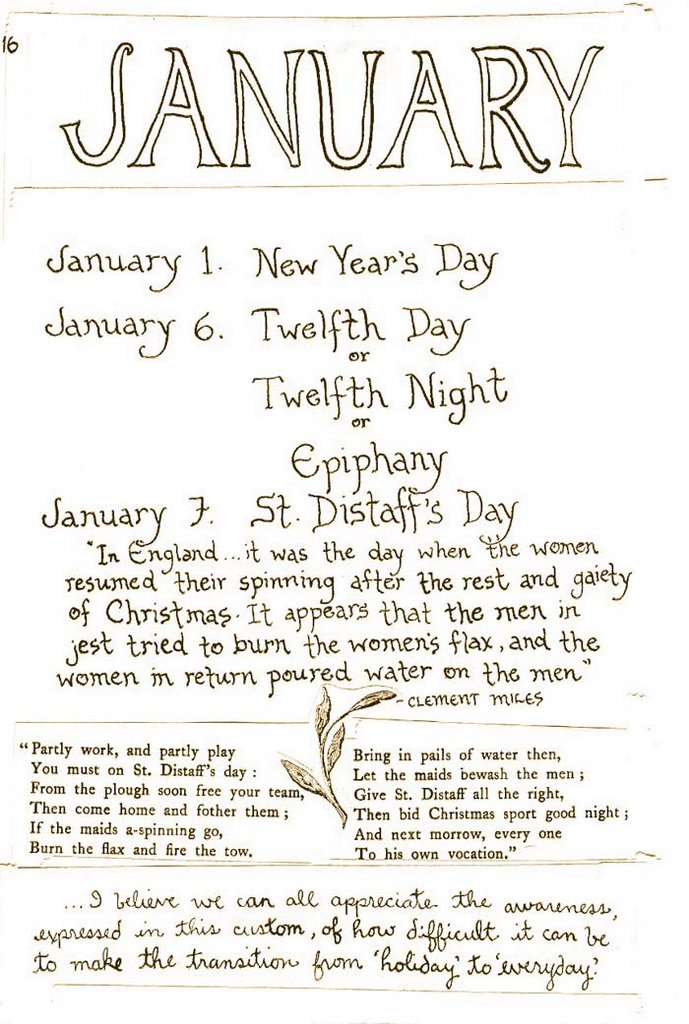 16
JANUARY
January 1. New Year's Day
January 6. Twelfth Day
or
Twelfth Night
or
Epiphany
January 7. St. Distaff's Day
"In England...it was the day when the women
resumed their spinning after the rest and gaiety
of Christmas. It appears that the men in
jest tried to burn the women's flax, and the
women in return poured water on the men"
- CLEMENT MILES
"Partly work, and partly play
You must on St. Distaff's day :
From the plough soon free your team,
Then come home and fother them ;
If the maids a-spinning go,
Burn the flax and fire the tow.
Bring in pails of water then,
Let the maids bewash the men ;
Give St. Distaff all the right,
Then bid Christmas sport good night ;
And next morrow, every one
To his own vocation."
...I believe we can all appreciate the awareness,
expressed in this custom, of how difficult it can be
to make the transition from 'holiday' to 'everyday'.